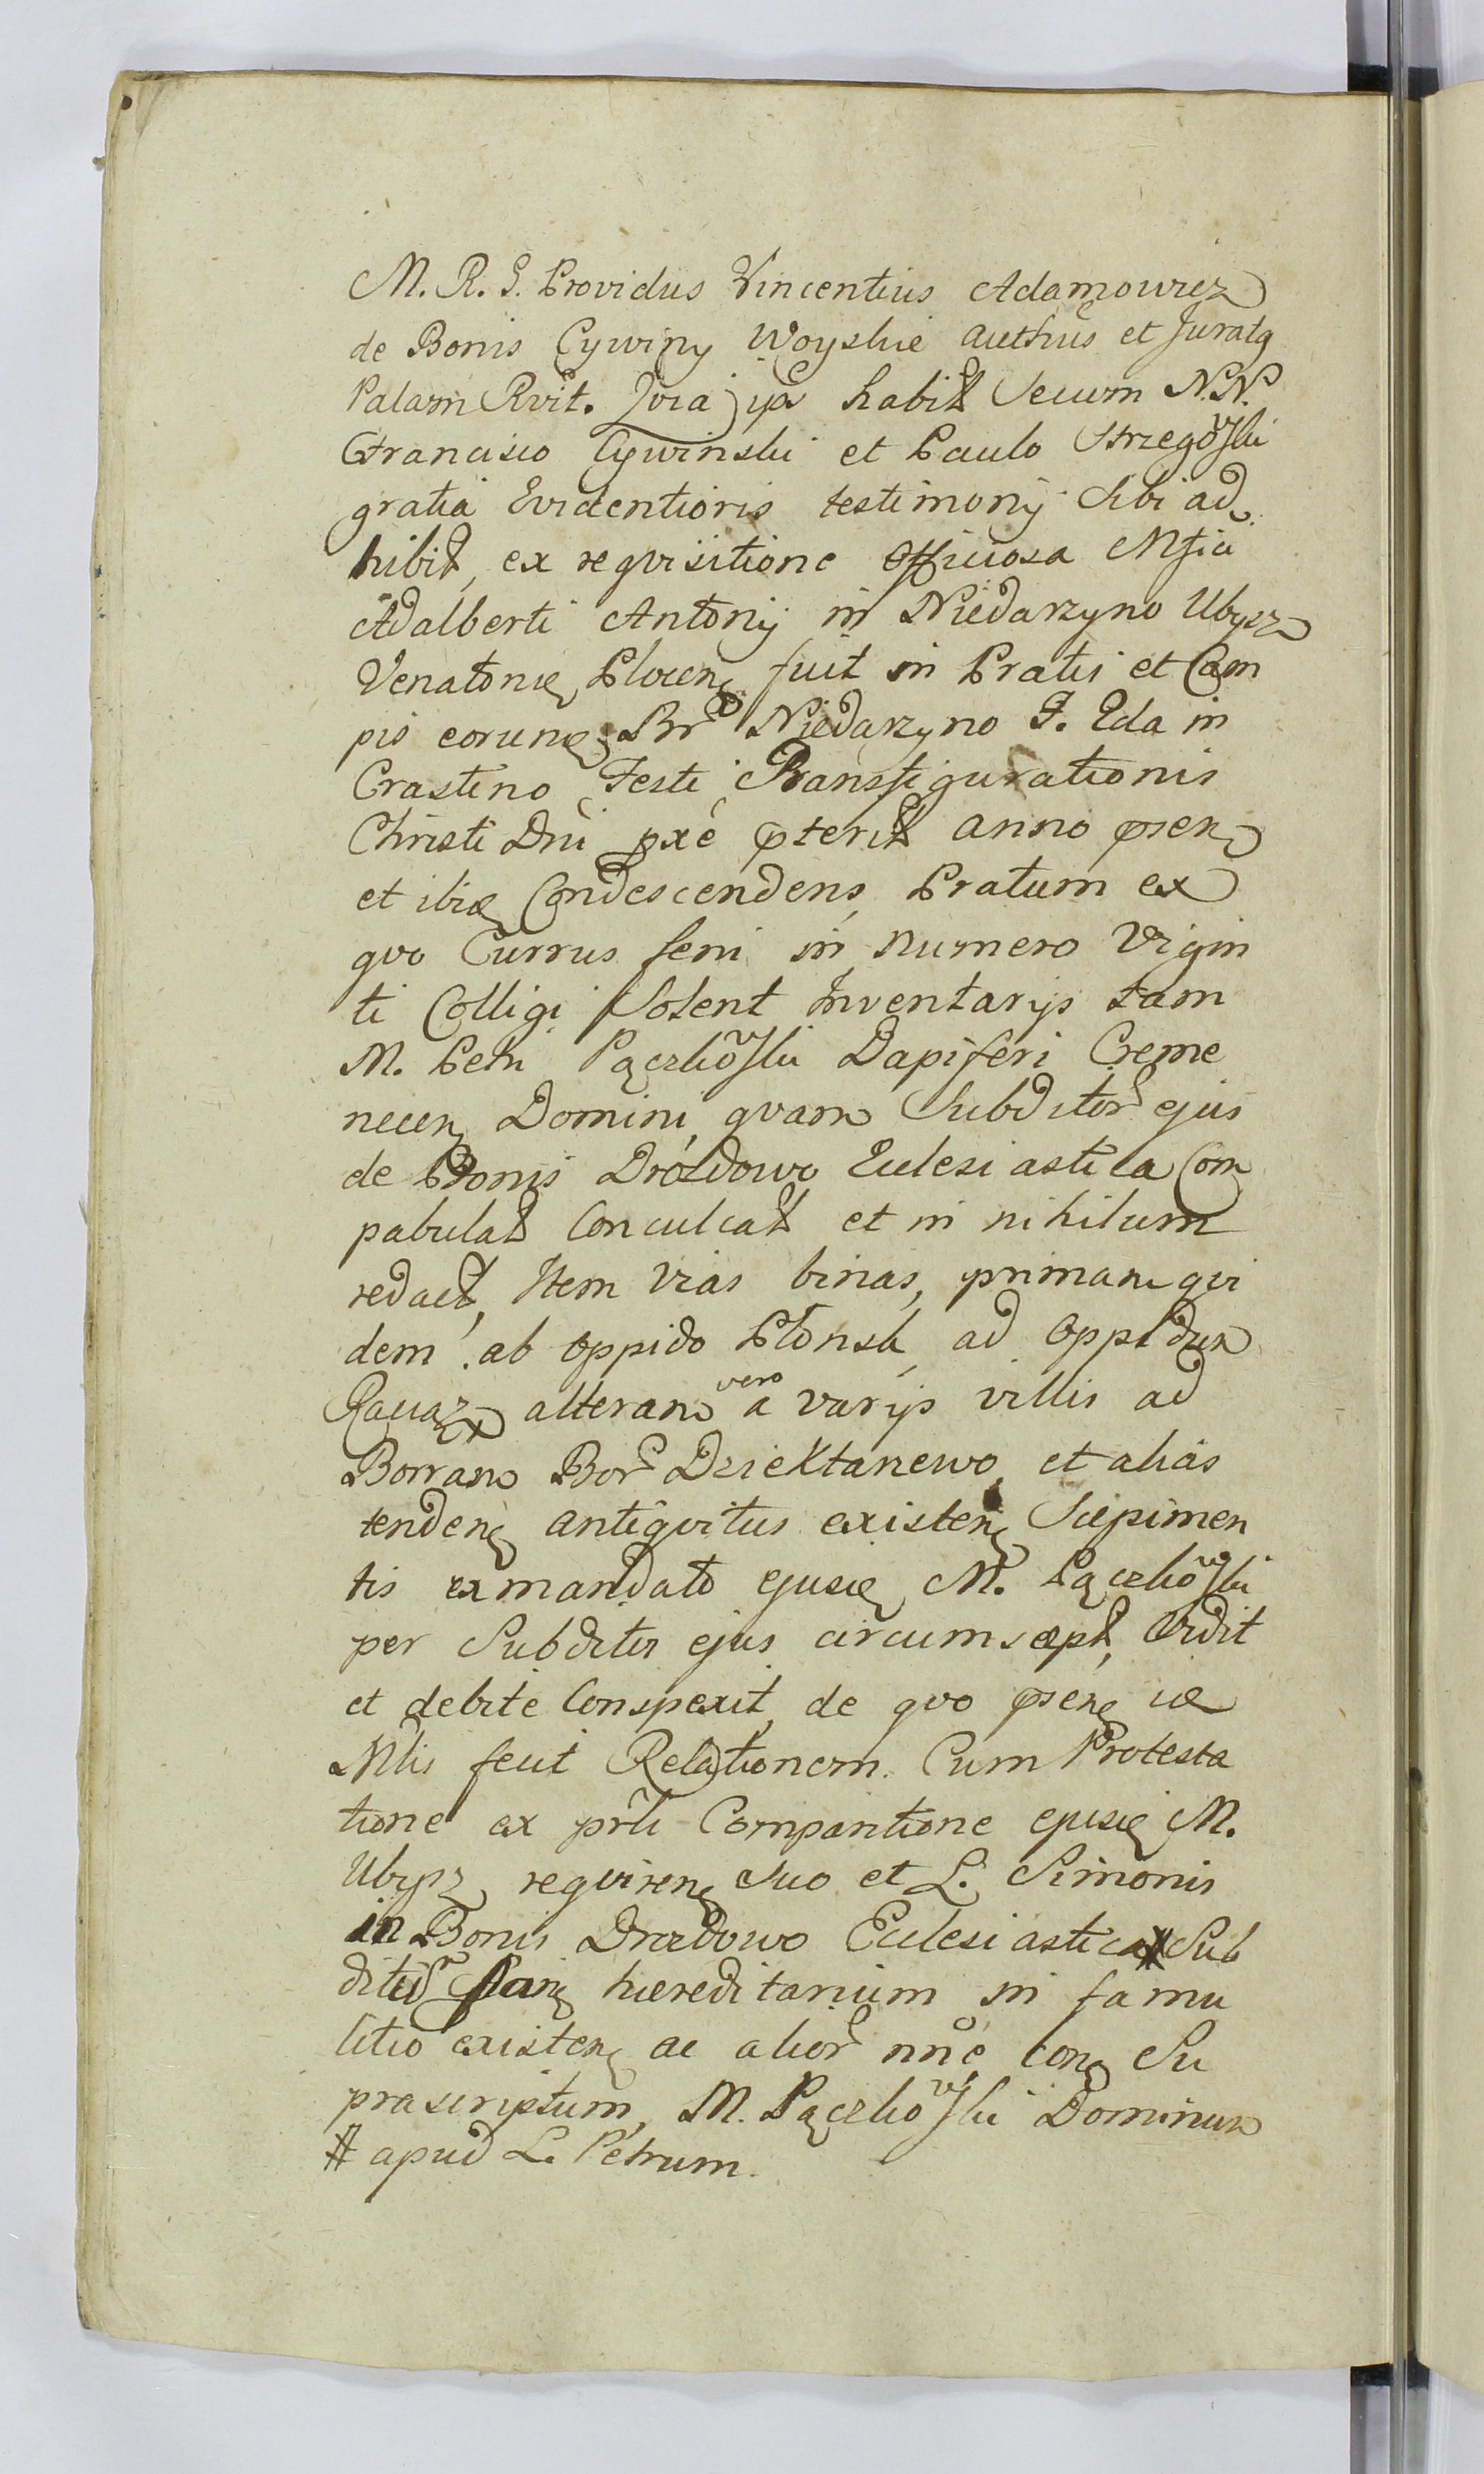 M. R. G. Providus Vincentius Adamowicz
de Bonis Cywiny Woyskie authus et Juratq
Palam Rvit. Qvia ipse habit Secum N.N.
Francisco Cywinski et Paulo Strzegowski
gratia Evidentioris testimonÿ Sibi ad
hibit, ex reqvisitione Officiosa Mfici
Adalberti Antonÿ in Niedarzyno Ubysz
Venatoris Plocen fuit in Pratis et Cam
pis eorum Bnr Niedarzyno F. Eda in
Crastino Festi Transfigurationis
Christi Dni pxe pterit anno psen
et ibiq Condescendens, Pratum ex
qvo Currus feni in numero Vigin
ti Colligi Solent Inventarÿs tam
M. Petri Pączkowski Dapiferi Creme
necen Domini, qvam Subditor ejus
de Bonis Drozdowo Eclesiastica Com
pabulat Conculcat et in nihilum
redact, Item Vias binas, primam qvi
dem ab oppido Płonsk, ad Oppidum
Raciaz alteram vero a varÿs villis ad
Borram Bor Dziektarzewo, et alias
tenden antiqvitus existen Sæpimen
tis ex mandato ejusd M. Pączkowski
per Subditos ejus circumsæpt, Vidit
et debite Conspexit, de qvo psen
Mlis fecit Relationem. Cum Protesta
tione ex prti Comparitione ejusd M.
Ubysz reqviren Suo et L. Simonis
in Bonis Drozdowo Eclesiastica # Sub
ditu hæreditarium in famu
litio existen ac alior nne con Su
prascriptum, M. Pączkowski Dominum
# apud L. Petrum.